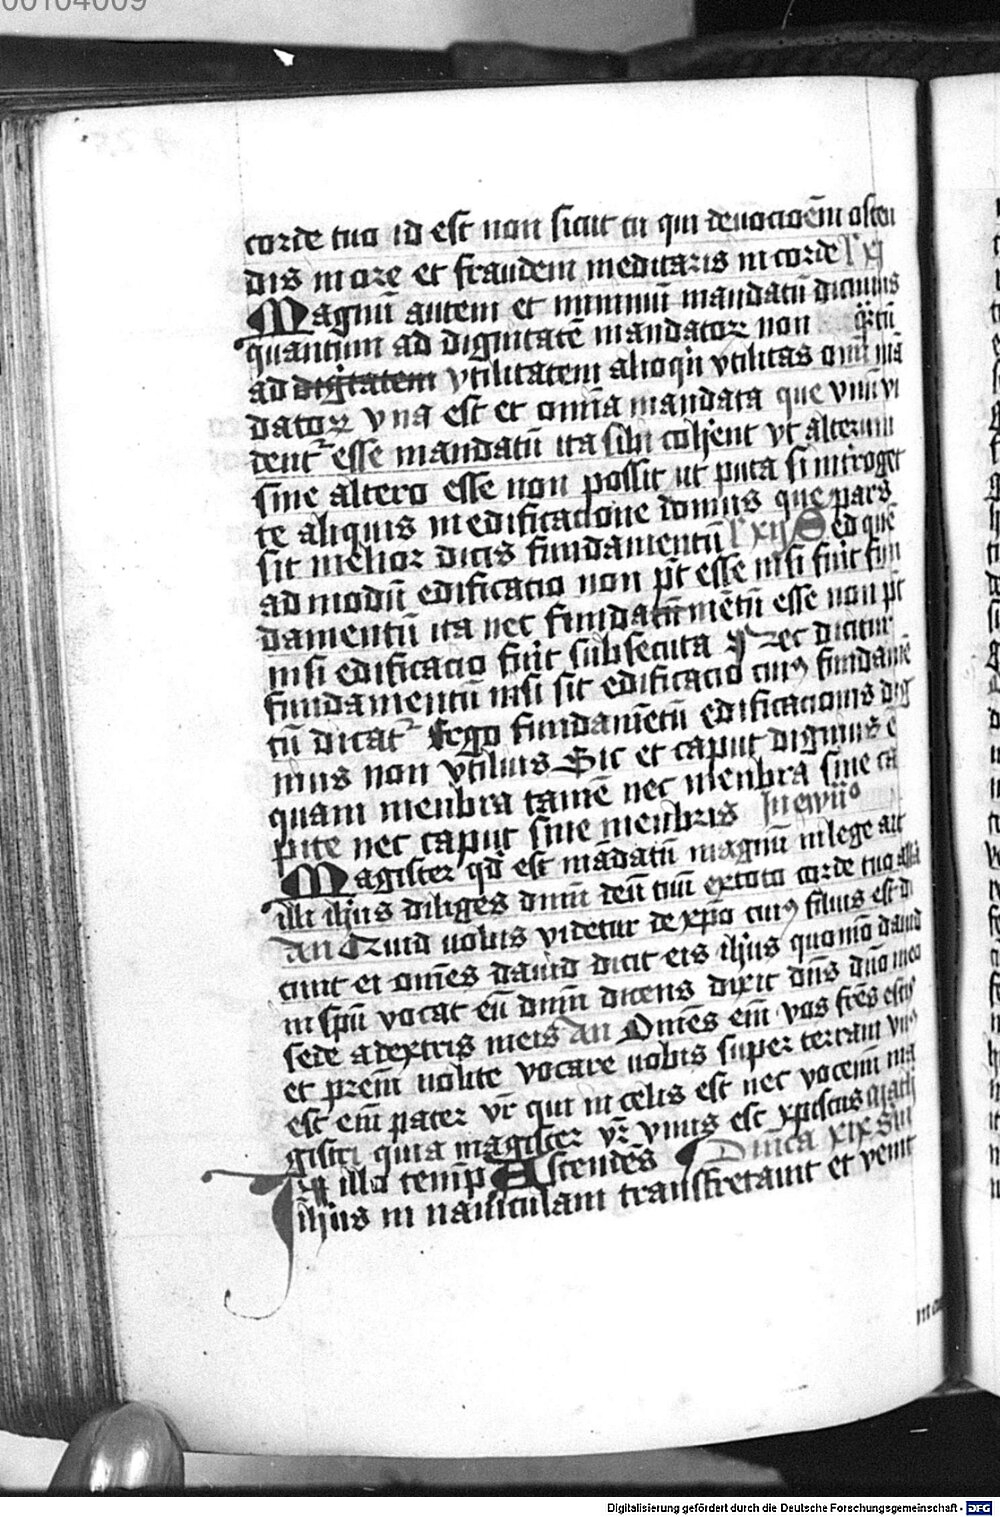 00104009
corde tuo id est non sicut tu qui deuocioēm osten
dis in ore et fraudem meditaris in corde l xi
Magnū autem et minimū mandatū dicimus
quantum ad dignitatē mandatoꝝ non
ad digitatem vtilitatem alioqn vtilitas om̄ ma
datoꝝ vna est et om̄ia mandata que vnū vi
dent esse mandatū ita sibi coh̄ent vt alterum
sine altero esse non possit ut puta si introget
te aliquis in edificacione domus que pars
sit melior dicis fundamentū l xij Sed quē
ad modū edificacio non pt̄ esse nisi fuīt fun
damentū ita nec fundatū mētū esse non pt̄
nisi edificacio fuīt subsecuta Nec dicitur
fundamentū nisi sit edificacio cuiꝰ fundamē
tū dicat Ergo fundamētū edificacionis dig
nius non vtilius Sic et caput dignius e
quam menbra tamē nec menbra sine ca
pite nec caput sine menbris In ewūo
Magister qd̄ est mādatū magnū in lege ait
illi ih̄us diliges dn̄m deū tuū ex toto corde tuo
an Quid uobis videtur de xp̄o cuiꝰ filius est di
cunt ei om̄es dauid dicit eis ih̄us quomō dauid
in sp̄u vocat eū dn̄m dicens dixit dn̄s dn̄o meo
sede a dextris meis an Om̄es em̄ vos frēs estis
et prēm nolite vocare uobis super terram vnꝰ
est em̄ pater vr̄ qui in celis est nec vocemī ma
gistri quia magister vr̄ vnus est xpistus
In illo temp̄ Ascendēs Dn̄ica xix
ih̄us in nauiculam transfretauit et venit
Digitalisierung gefördert durch die Deutsche Forschungsgemeinschaft - DFG